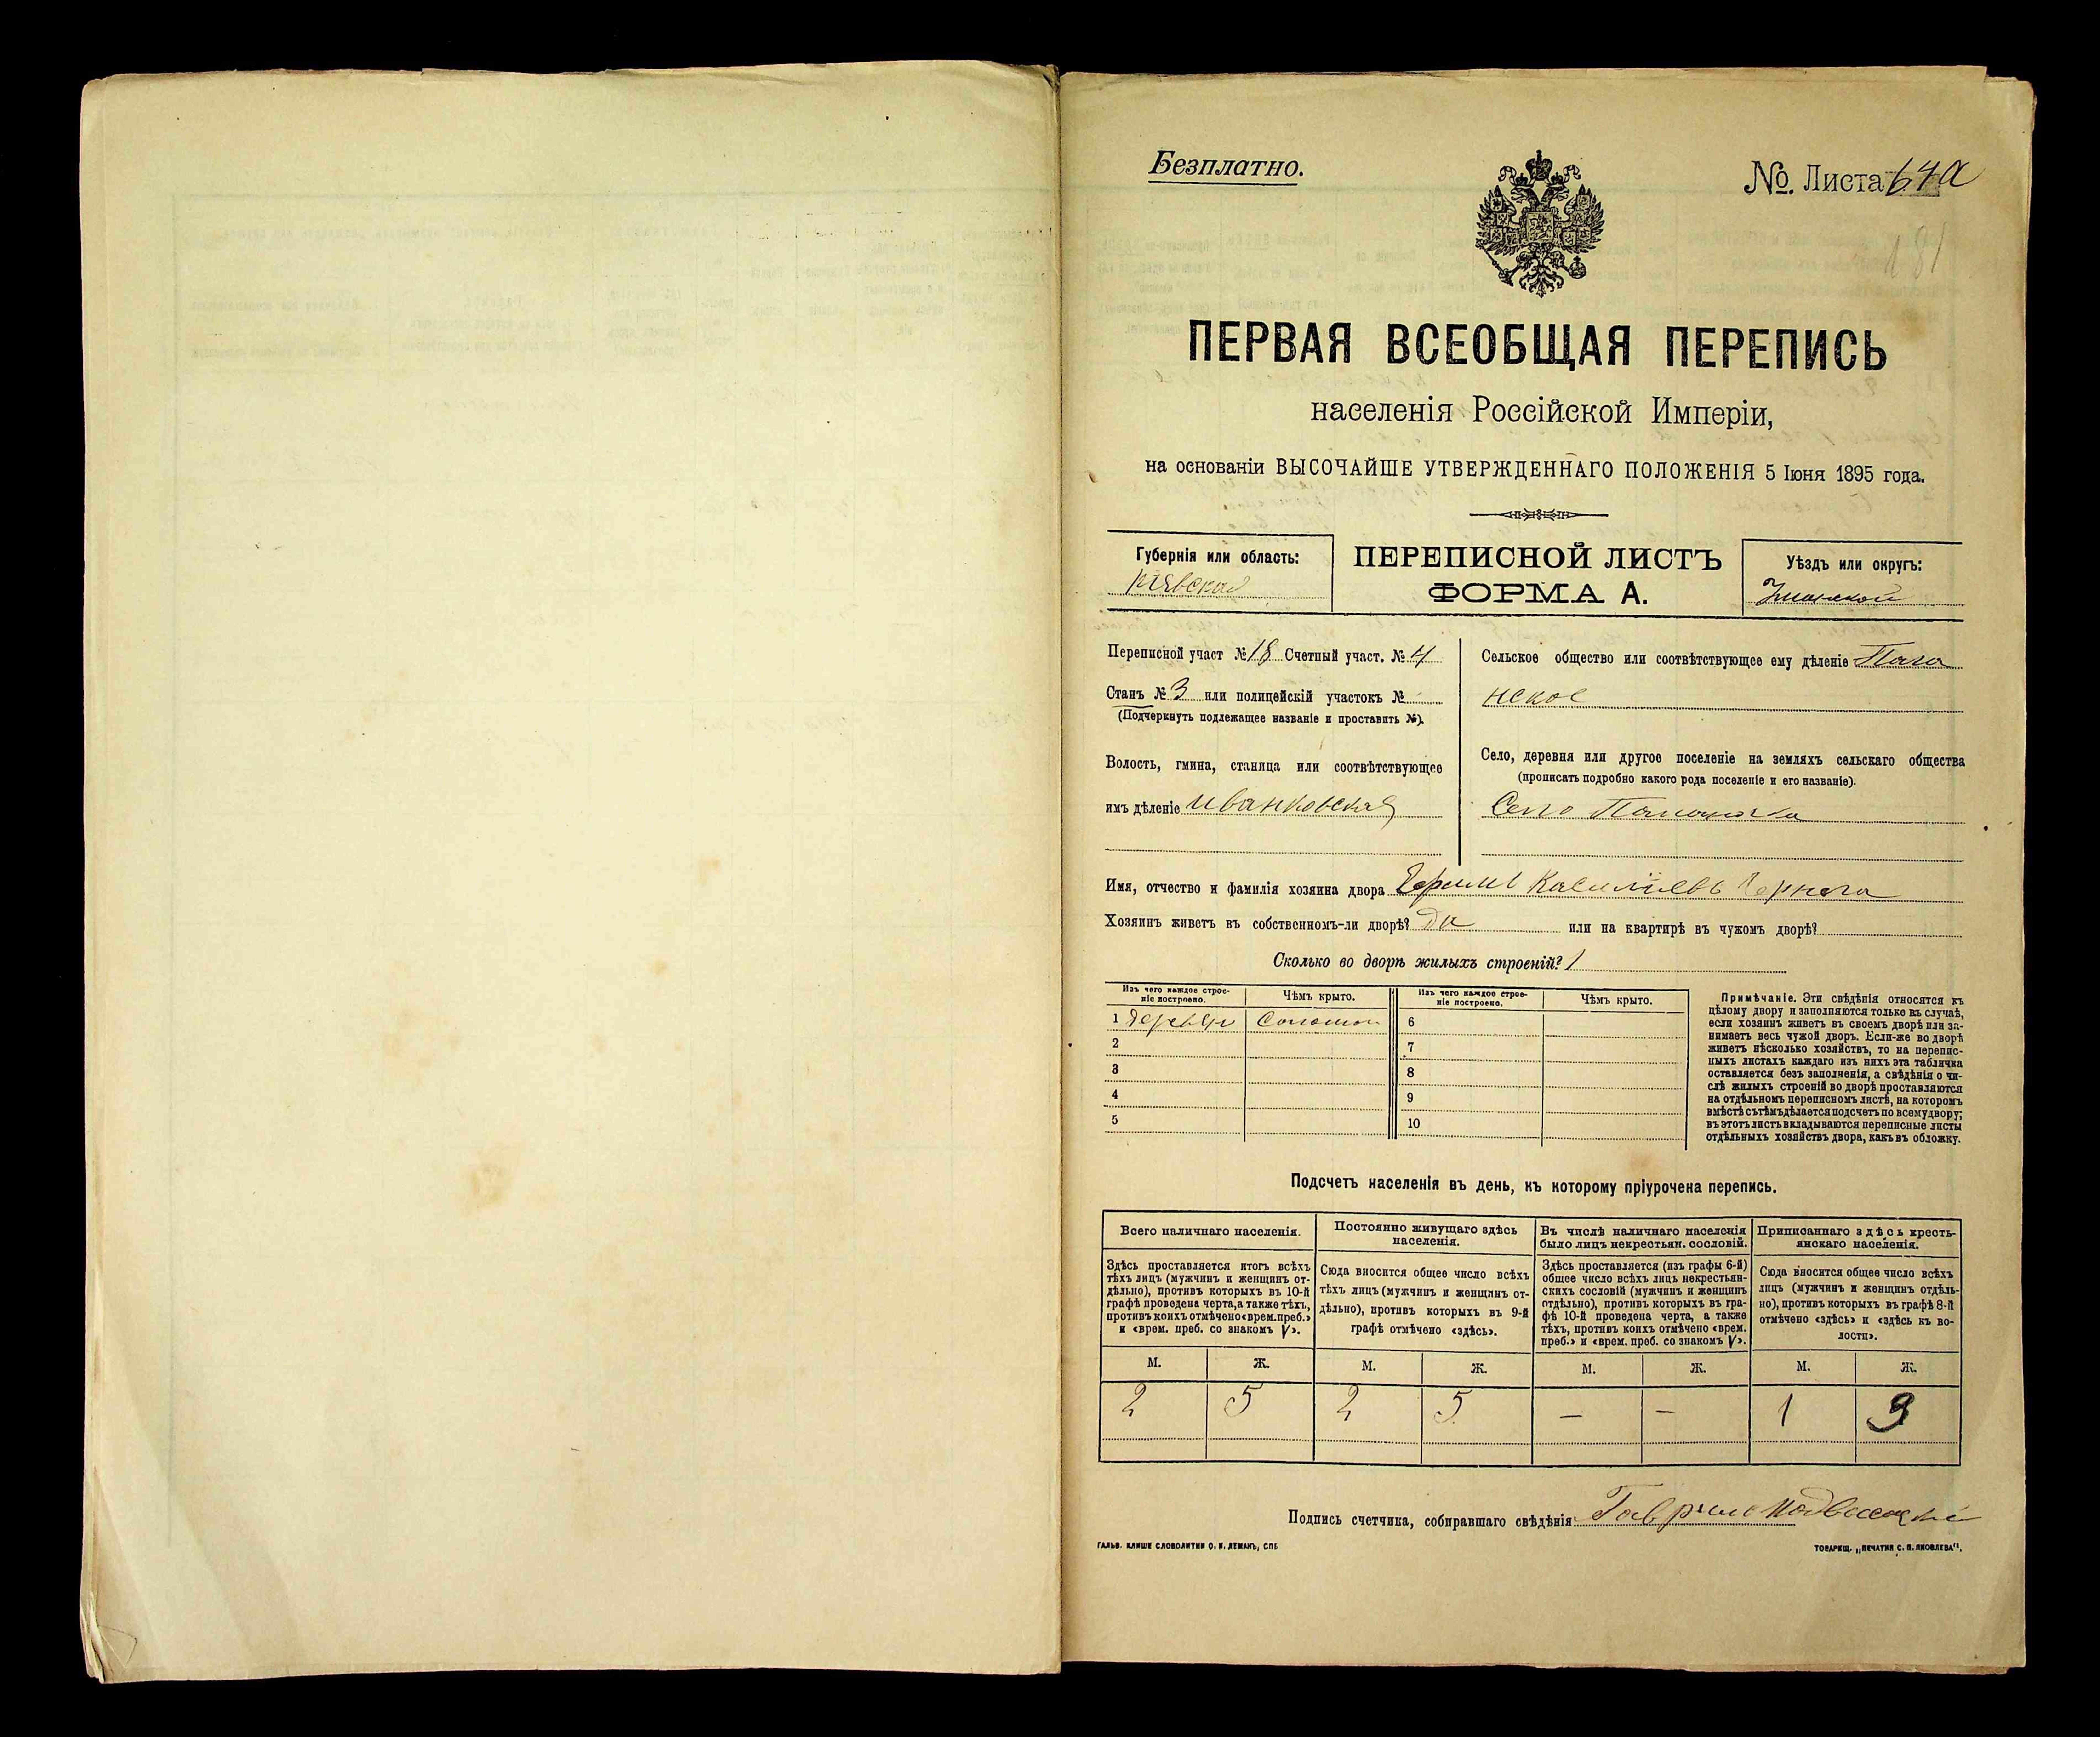 Безплатно.
№. Листа 64а
181
ПЕРВАЯ ВСЕОБЩАЯ ПЕРЕПИСЬ
населенія Россійской Имперіи,
на основаніи ВЫСОЧАЙШЕ УТВЕРЖДЕННАГО ПОЛОЖЕНІЯ 5 Іюня 1895 года.
Губернія или область:
Кіевская
ПЕРЕПИСНОЙ ЛИСТЪ
ФОРМА А.
Уѣздъ или округъ:
Уманской
Переписной участ № 18 Счетный участ. № 4
Станъ № 3 или полицейскій участокъ №
(Подчеркнуть подлежащее названіе и проставить №).
Волость, гмина, станица или соотвѣтствующее
имъ дѣленіе Иванковская
Сельское общество или соотвѣтствующее ему дѣленіе
нское
Село, деревня или другое поселеніе на земляхъ сельскаго общества
(прописать подробно какого рода поселеніе и его названіе).
Село
Имя, отчество и фамилія хозяина двора
Хозяинъ живетъ въ собственномъ-ли дворѣ? Да или на квартирѣ въ чужомъ дворѣ?
Сколько во дворѣ жилыхъ строеній? 1
Изъ чего каждое строе-
ніе построено.
Чѣмъ крыто.
Изъ чего каждое строе-
ніе построено.
Чѣмъ крыто.
1 6
2 7
3 8
4 9
5 10
Примѣчаніе. Эти свѣдѣнія относятся къ
цѣлому двору и заполняются только въ случаѣ,
если хозяинъ живетъ въ своемъ дворѣ или за-
нимаетъ весь чужой дворъ. Если-же во дворѣ
живетъ нѣсколько хозяйствъ, то на перепис-
ныхъ листахъ каждаго изъ нихъ эта табличка
оставляется безъ заполненія, а свѣдѣнія о чи-
слѣ жилыхъ строеній во дворѣ проставляются
на отдѣльномъ переписномъ листѣ, на которомъ
вмѣстѣ съ тѣмъ дѣлается подсчетъ по всему двору;
въ этотъ листъ вкладываются переписные листы
отдѣльныхъ хозяйствъ двора, какъ въ обложку.
Подсчетъ населенія въ день, къ которому пріурочена перепись.
Всего наличнаго населенія.
Здѣсь проставляется итогъ всѣхъ
тѣхъ лицъ (мужчинъ и женщинъ от-
дѣльно), противъ которыхъ въ 10-й
графѣ проведена черта, а также тѣхъ,
противъ коихъ отмѣчено «врем. преб.»
и «врем. преб. со знакомъ V».
Постоянно живущаго здѣсь
населенія.
Сюда вносится общее число всѣхъ
тѣхъ лицъ (мужчинъ и женщинъ от-
дѣльно), противъ которыхъ въ 9-й
графѣ отмѣчено «здѣсь».
Въ числѣ наличнаго населенія
было лицъ некрестьян. сословій.
Здѣсь проставляется (изъ графы 6-й)
общее число всѣхъ лицъ некрестьян-
скихъ сословій (мужчинъ и женщинъ
отдѣльно), противъ которыхъ въ гра-
фѣ 10-й проведена черта, а также
тѣхъ, противъ коихъ отмѣчено «врем.
преб.» и «врем. преб. со знакомъ V».
Приписаннаго здѣсь кресть-
янскаго населенія.
Сюда вносится общее число всѣхъ
лицъ (мужчинъ и женщинъ отдѣль-
но), противъ которыхъ въ графѣ 8-й
отмѣчено «здѣсь» и «здѣсь къ во-
лости».
М. Ж. М. Ж. М. Ж. М. Ж.
2 5 2 5 — — 1 3
Подпись счетчика, собиравшаго свѣдѣнія
ГАЛЬВ. КЛИШЕ СЛОВОЛИТНИ О. И. ЛЕМАНЪ, СПБ
ТОВАРИЩ. „ПЕЧАТНЯ С. П. ЯКОВЛЕВА".